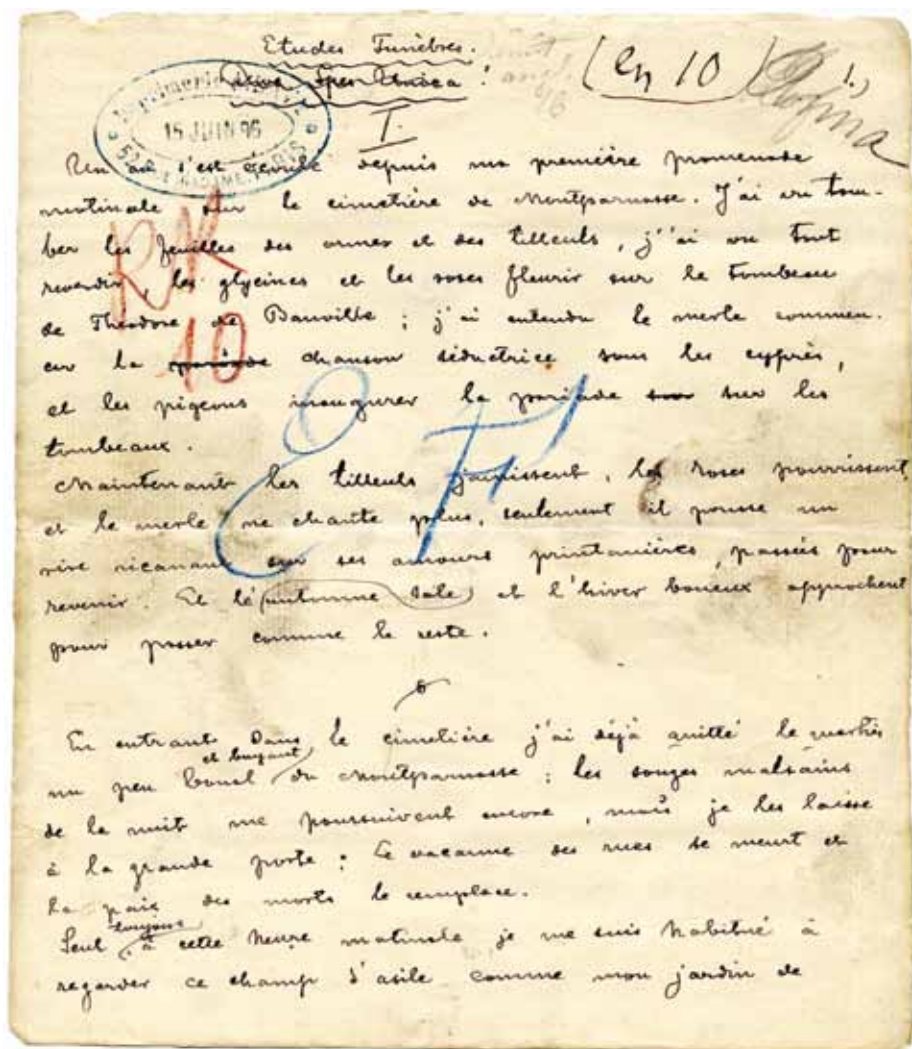 Etudes Funèbres.
Ave Spes Unica !
(en 10)
1.)
Imprimerie
15 JUIN 96
I.
Un an s'est écoulé depuis ma première promenade
matinale sur le cimetière de Montparnasse. J'ai vu tom-
ber les feuilles des ormes et des tilleuls, j'ai vu tout
reverdir, les glycines et les roses fleurir sur le tombeau
de Théodore de Banville ; j'ai entendu le merle commen-
cer la pariade chanson séductrice sous les cyprès,
et les pigeons inaugurer la pariade sur sur les
tombeaux.
RR
10
E F
Maintenant les tilleuls jaunissent, les roses pourrissent,
et le merle ne chante plus, seulement il pousse un
rire ricanant sur ses amours printanières, passés pour
revenir. Et l'automne sale et l'hiver boueux approchent
pour passer comme le reste.
En entrant dans le cimetière j'ai déjà quitté le quartier
un peu banal et bruyant du Montparnasse ; les songes malsains
de la nuit me poursuivent encore, mais je les laisse
à la grande porte : Le vacarme des rues se meurt et
la paix des morts le remplace.
Seul toujours à cette heure matinale je me suis habitué à
regarder ce champ d'asile comme mon jardin de